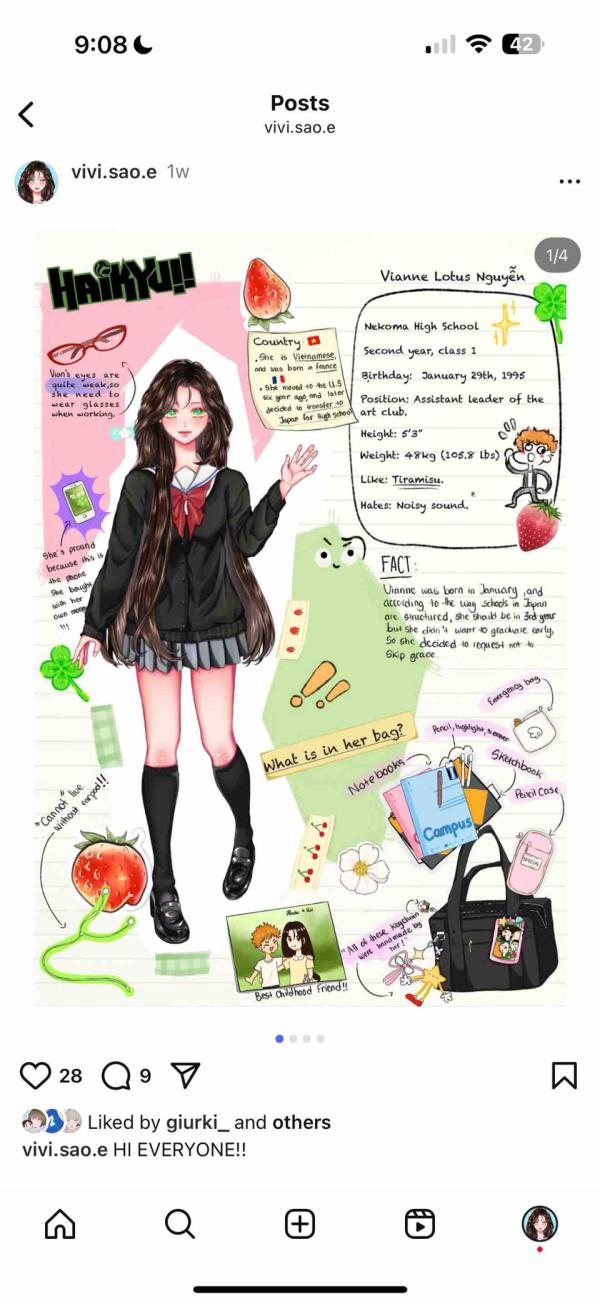 9:08
42
Posts
vivi.sao.e
vivi.sao.e 1w
1/4
HAIKYU!!
Vianne Lotus Nguyễn
Country:
• She is Vietnamese,
and was born in France
• She moved to the U.S
six year ago, and later
decided to transfer to
Japan for high school
Nekoma High School
Second year, class 1
Birthday: January 29th, 1995
Position: Assistant leader of the
art club.
Height: 5'3"
Weight: 48kg (105.8 lbs)
Like: Tiramisu.
Hates: Noisy sound.
Vian's eyes are
quite weak, so
she need to
wear glasses
when working.
She's pround
because this is
the phone
she bought
with her
own money
!!!
FACT:
Vianne was born in January, and
according to the way schools in Japan
are structured, she should be in 3rd year
but she didn't want to graduate early,
So she decided to request not to
Skip grade.
What is in her bag?
Emergency bag
Pencil, highlight,
Sketchbook
Notebooks
Pencil Case
Campus
SPECIAL
"Cannot" live
without earpod!!
Best Childhood Friend!!
"All of these Keychain
were handmade by
her!"
28
9
Liked by giurki_ and others
vivi.sao.e HI EVERYONE!!